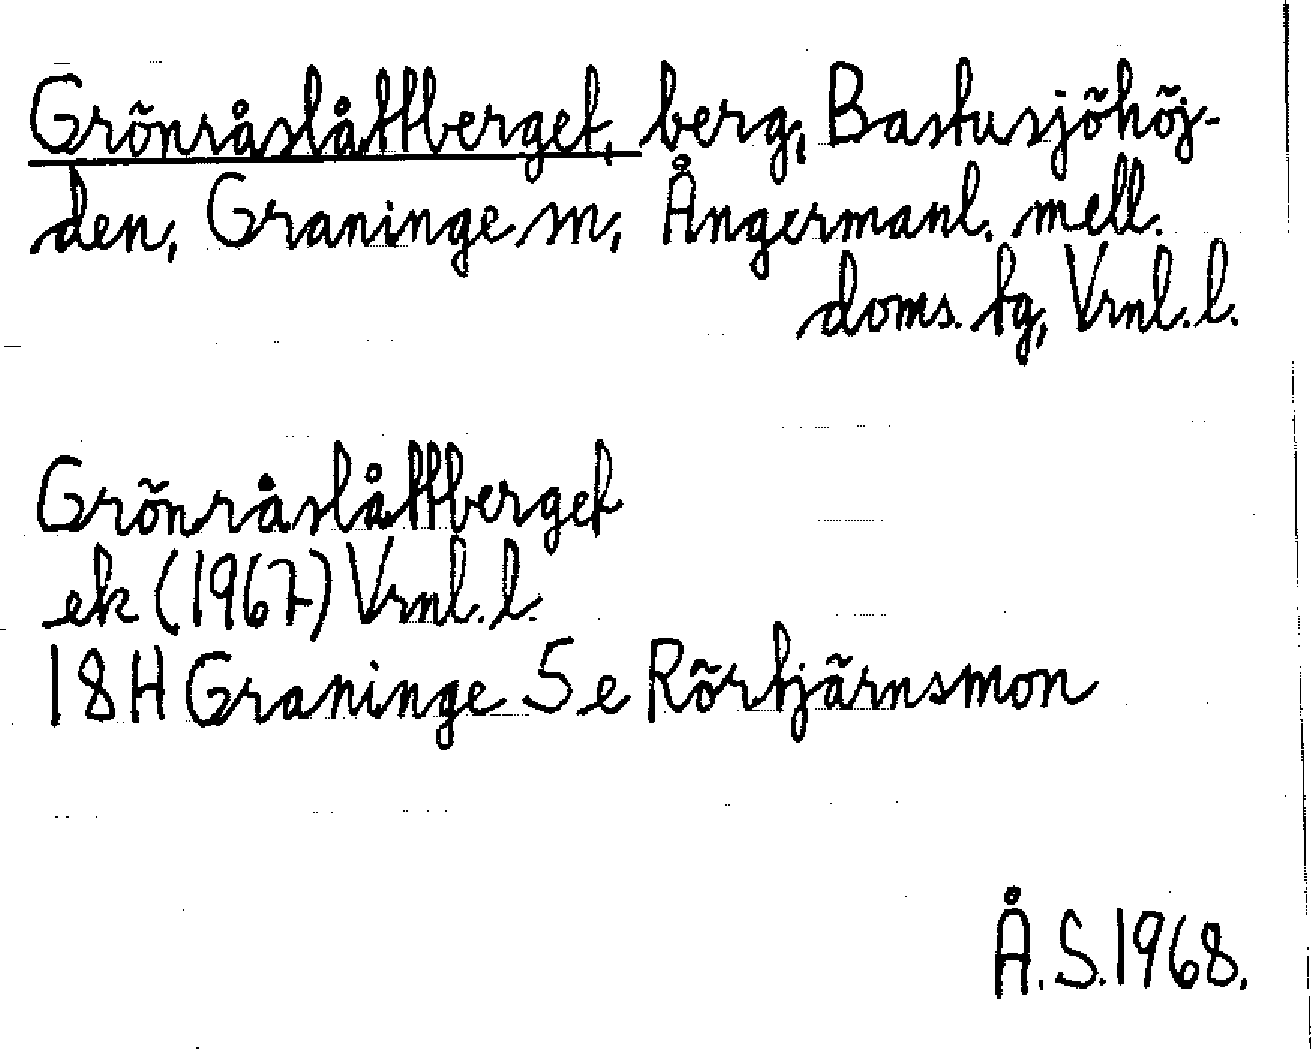 Grönråslåttberget, berg, Bastusjöhöj-
den, Graninge sn, Ångermanl. mell.
doms. tg, Vrnl. l.
Grönråslåttberget
ek (1967) Vrnl. l.
18H Graninge Se Rörtjärnsmon
Å. S. 1968.